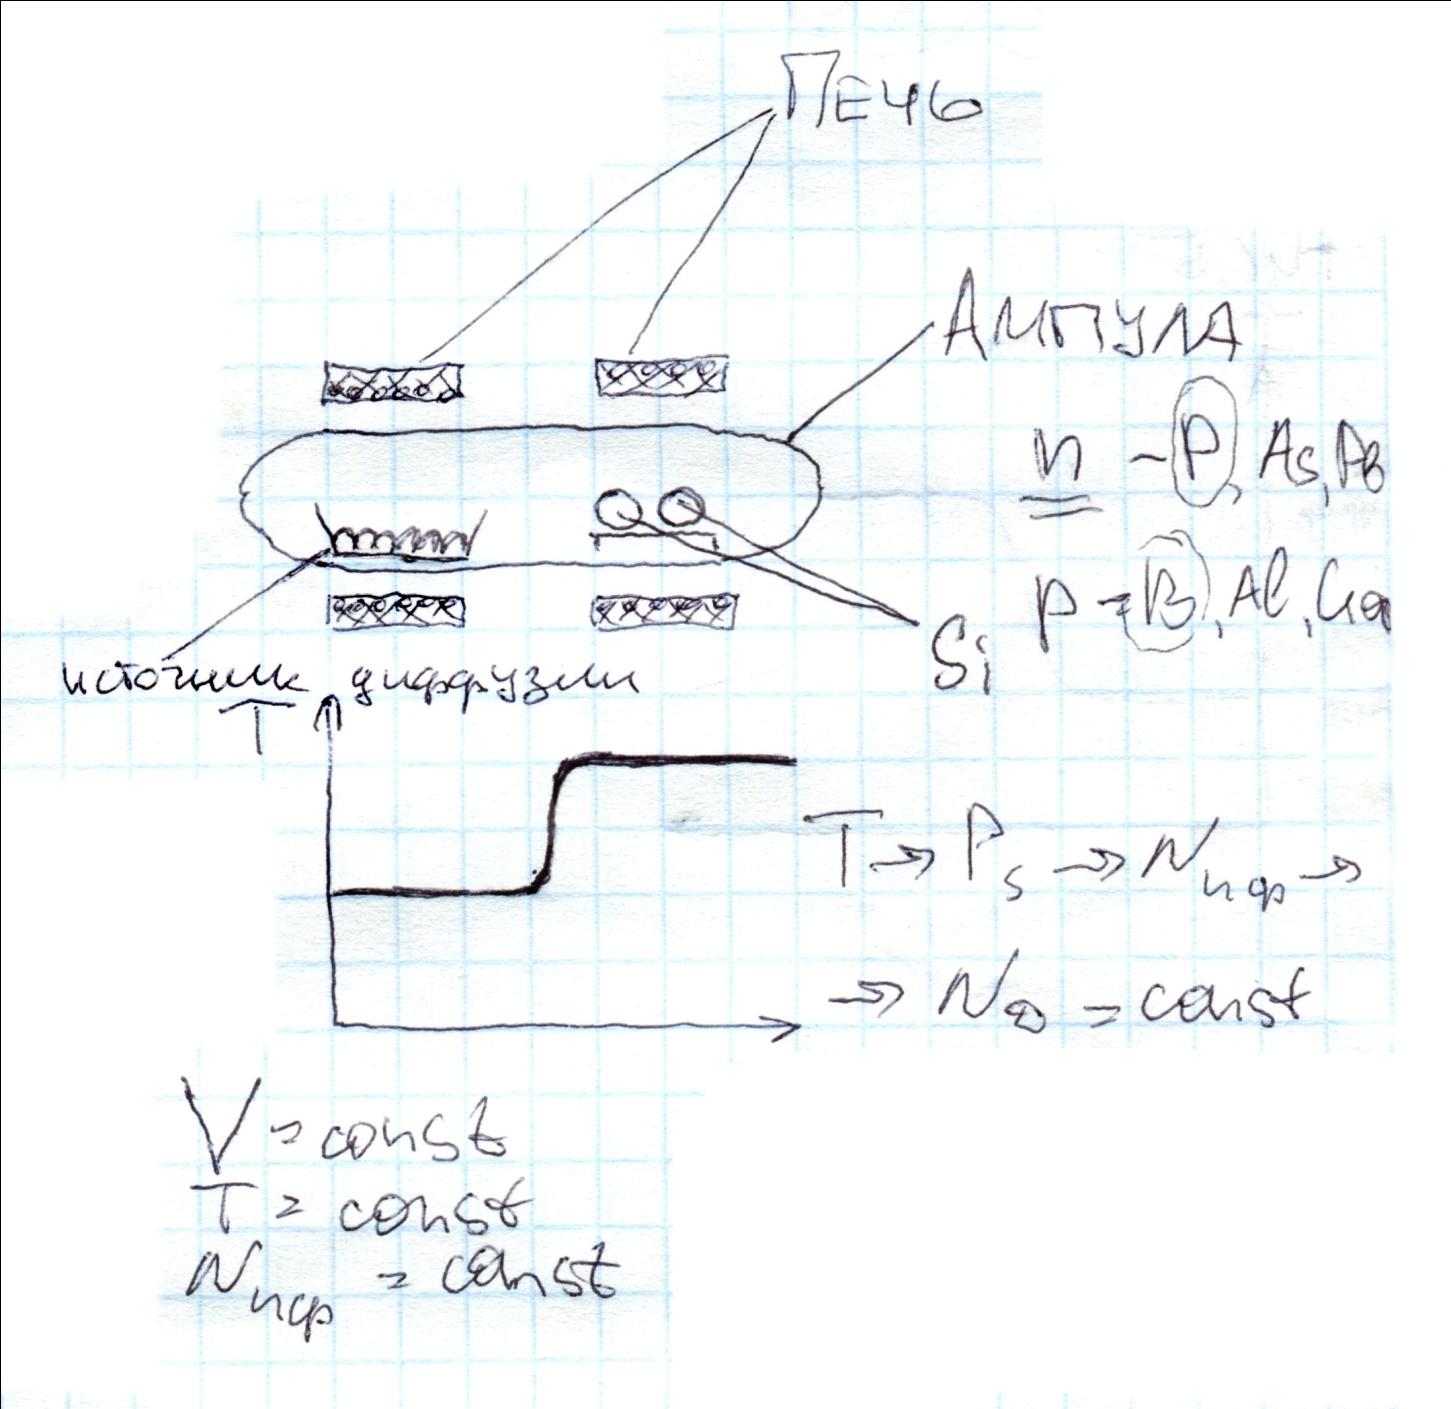 Печь
Ампула
n - P, As, Pb
p - B, Al, Ga
Si
источник диффузии
T
T → Ps → Nпф →
→ N∞ = const
V = const
T = const
Nпф = const